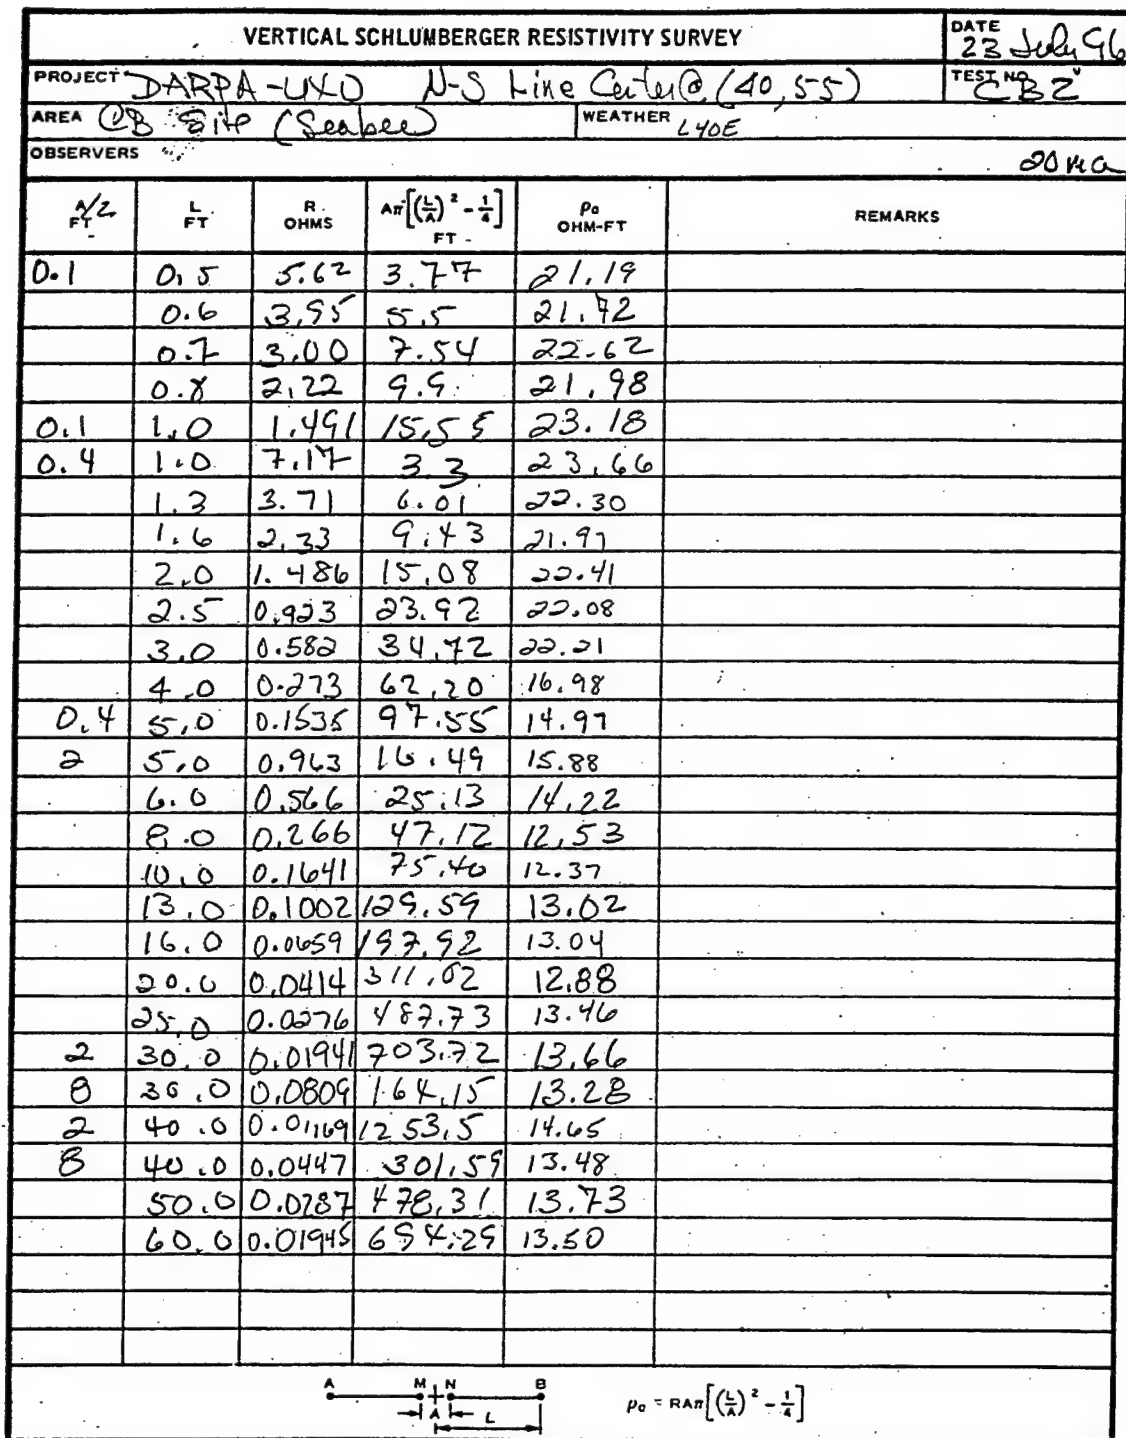 VERTICAL SCHLUMBERGER RESISTIVITY SURVEY
DATE
23 July 96
PROJECT DARPA-UXO N-S Line Center @ (40,55)
TEST NO
CB2
AREA CB Site (Seabee)
WEATHER
OBSERVERS
20 ma
A/2 FT L FT R OHMS Aπ[(L/A)² - 1/4] FT ρa OHM-FT REMARKS
0.1 0.5 5.62 3.77 21.19
0.6 3.95 5.5 21.72
0.7 3.00 7.54 22.62
0.8 2.22 9.9 21.98
0.1 1.0 1.491 15.55 23.18
0.4 1.0 7.17 3.3 23.66
1.3 3.71 6.01 22.30
1.6 2.33 9.43 21.97
2.0 1.486 15.08 22.41
2.5 0.923 23.92 22.08
3.0 0.582 34.72 22.21
4.0 0.273 62.20 16.98
0.4 5.0 0.1535 97.55 14.97
2 5.0 0.963 16.49 15.88
6.0 0.566 25.13 14.22
8.0 0.266 47.12 12.53
10.0 0.1641 75.40 12.37
13.0 0.1002 129.59 13.02
16.0 0.0659 197.92 13.04
20.0 0.0414 311.02 12.88
25.0 0.0276 487.73 13.46
2 30.0 0.01941 703.72 13.66
8 30.0 0.0809 164.15 13.28
2 40.0 0.01169 1253.5 14.65
8 40.0 0.0447 301.59 13.48
50.0 0.0287 478.31 13.73
60.0 0.01945 694.29 13.50
A M N B
A L
ρa = RAπ[(L/A)² - 1/4]